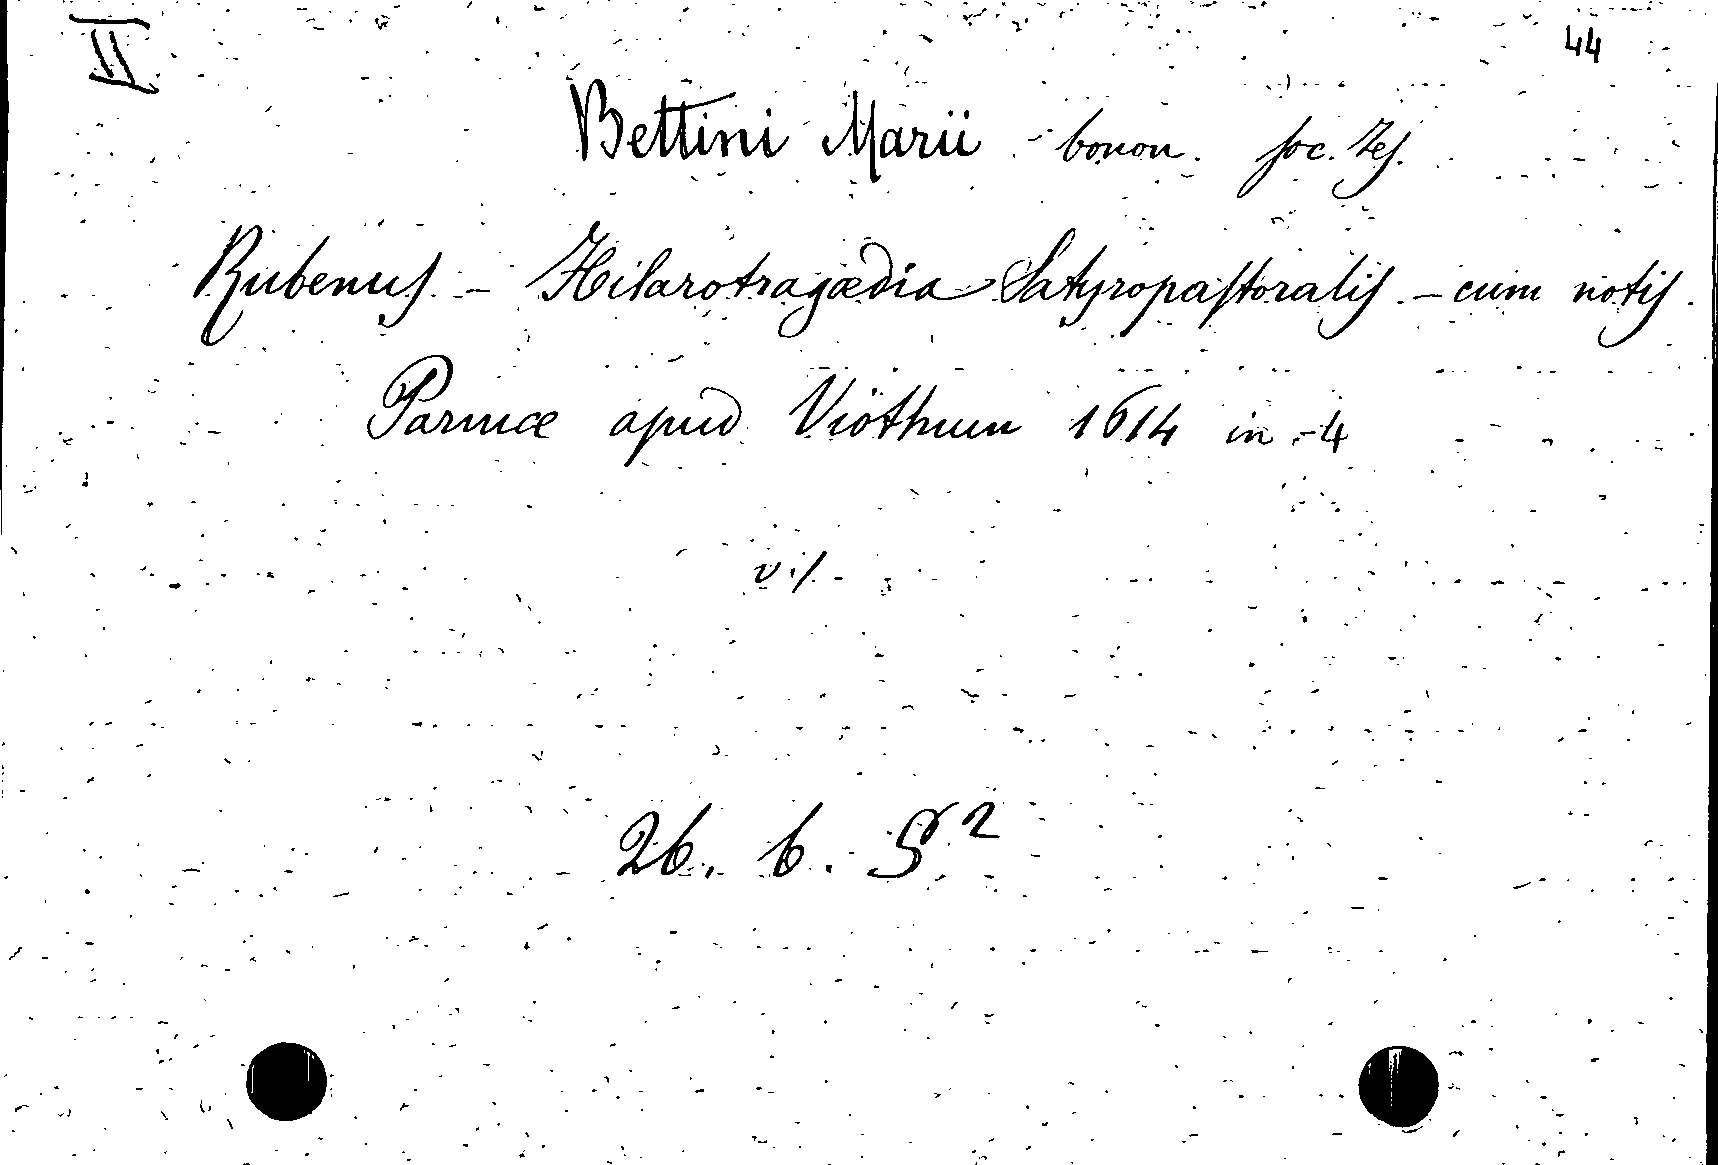 II
44
Bettini Marii - bonon. soc. Jes.
Rubenus - Hilarotragædia Satyropastoralis - cum notis.
Parmæ apud Viothum 1614 in-4
vis
26. 6. S²